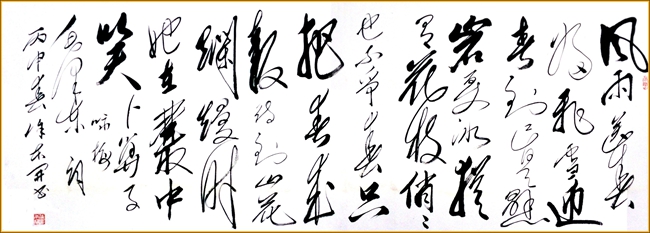 风雨送春
归飛雪迎
春到已是懸
崖百丈冰猶
有花枝俏〻
也不争春只
把春来
報待到山花
爛熳时
她在叢中
笑 卜算子
咏梅
毛泽东词
丙申 书